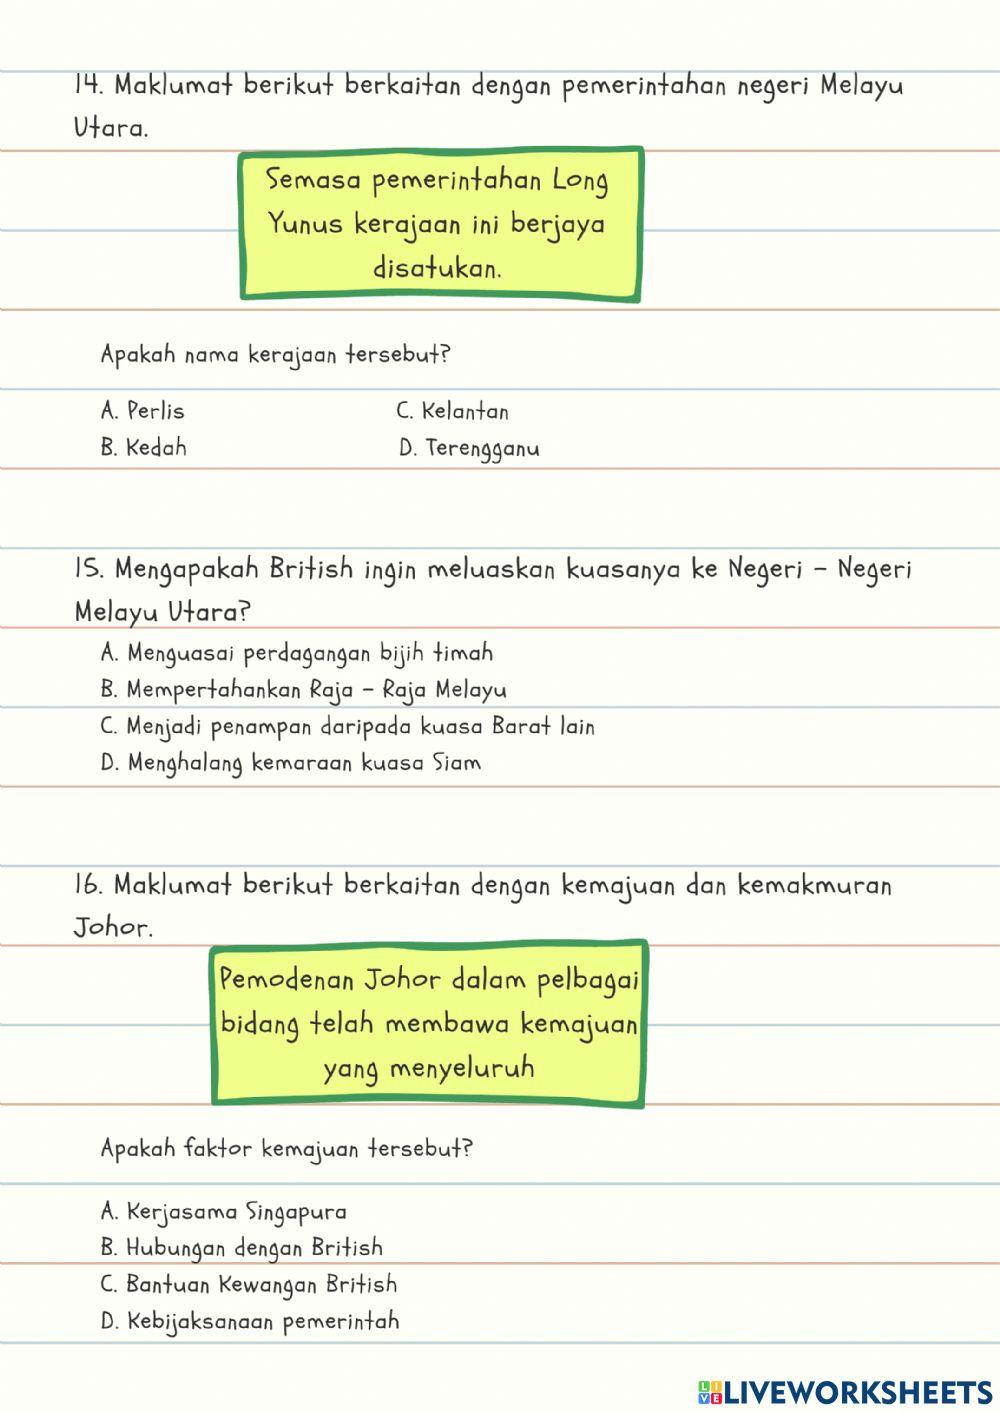 14. Maklumat berikut berkaitan dengan pemerintahan negeri Melayu
Utara.
Semasa pemerintahan Long
Yunus kerajaan ini berjaya
disatukan.
Apakah nama kerajaan tersebut?
A. Perlis
C. Kelantan
B. Kedah
D. Terengganu
15. Mengapakah British ingin meluaskan kuasanya ke Negeri - Negeri
Melayu Utara?
A. Menguasai perdagangan bijih timah
B. Mempertahankan Raja - Raja Melayu
C. Menjadi penampan daripada kuasa Barat lain
D. Menghalang kemaraan kuasa Siam
16. Maklumat berikut berkaitan dengan kemajuan dan kemakmuran
Johor.
Pemodenan Johor dalam pelbagai
bidang telah membawa kemajuan
yang menyeluruh
Apakah faktor kemajuan tersebut?
A. Kerjasama Singapura
B. Hubungan dengan British
C. Bantuan Kewangan British
D. Kebijaksanaan pemerintah
LIVE LIVEWORKSHEETS